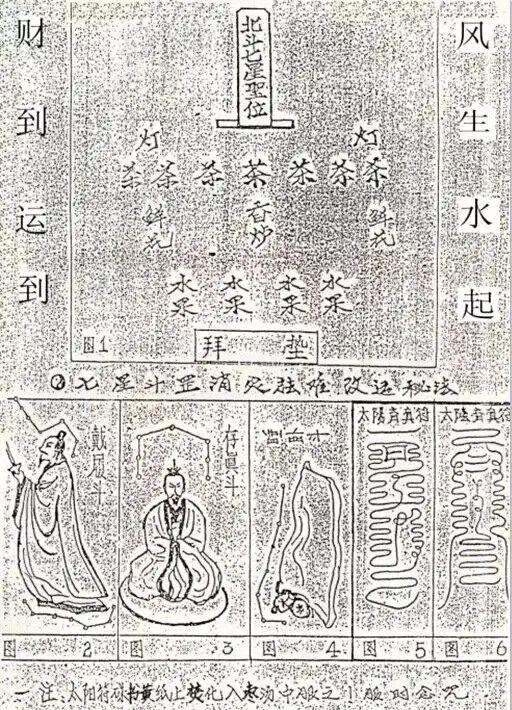 风生水起
财到运到
北斗七星聖位
灯 灯
茶 茶 茶 茶 茶 茶 茶
鲜花 香炉 鲜花
水果 水果 水果 水果
图1
拜 垫
七星斗罡消灾 难改运秘法
戴履斗
存眞斗
太陽 真符
太陰 真符
图 2
图 3
图 4
图 5
图 6
一注、太阳符 黄纸上焚化入枣汤中服之 服时念咒